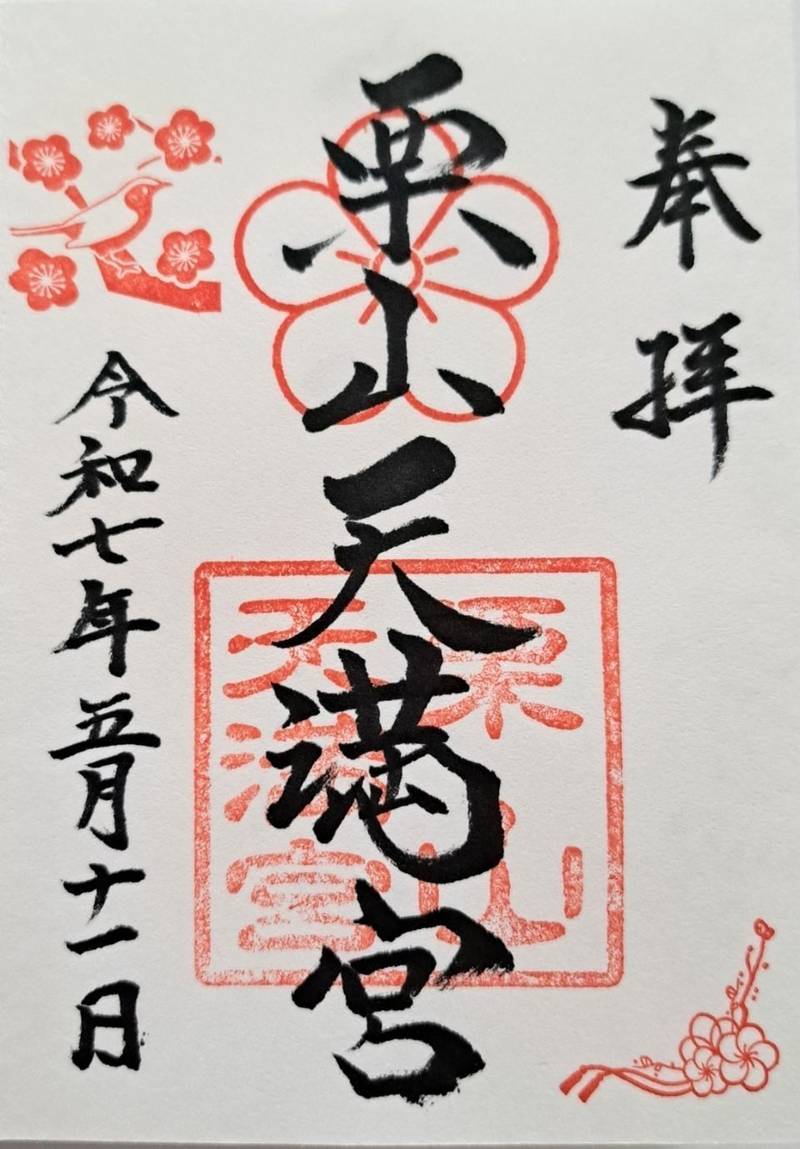 奉拝
栗山天満宮
栗山
天満宮
令和七年五月十一日